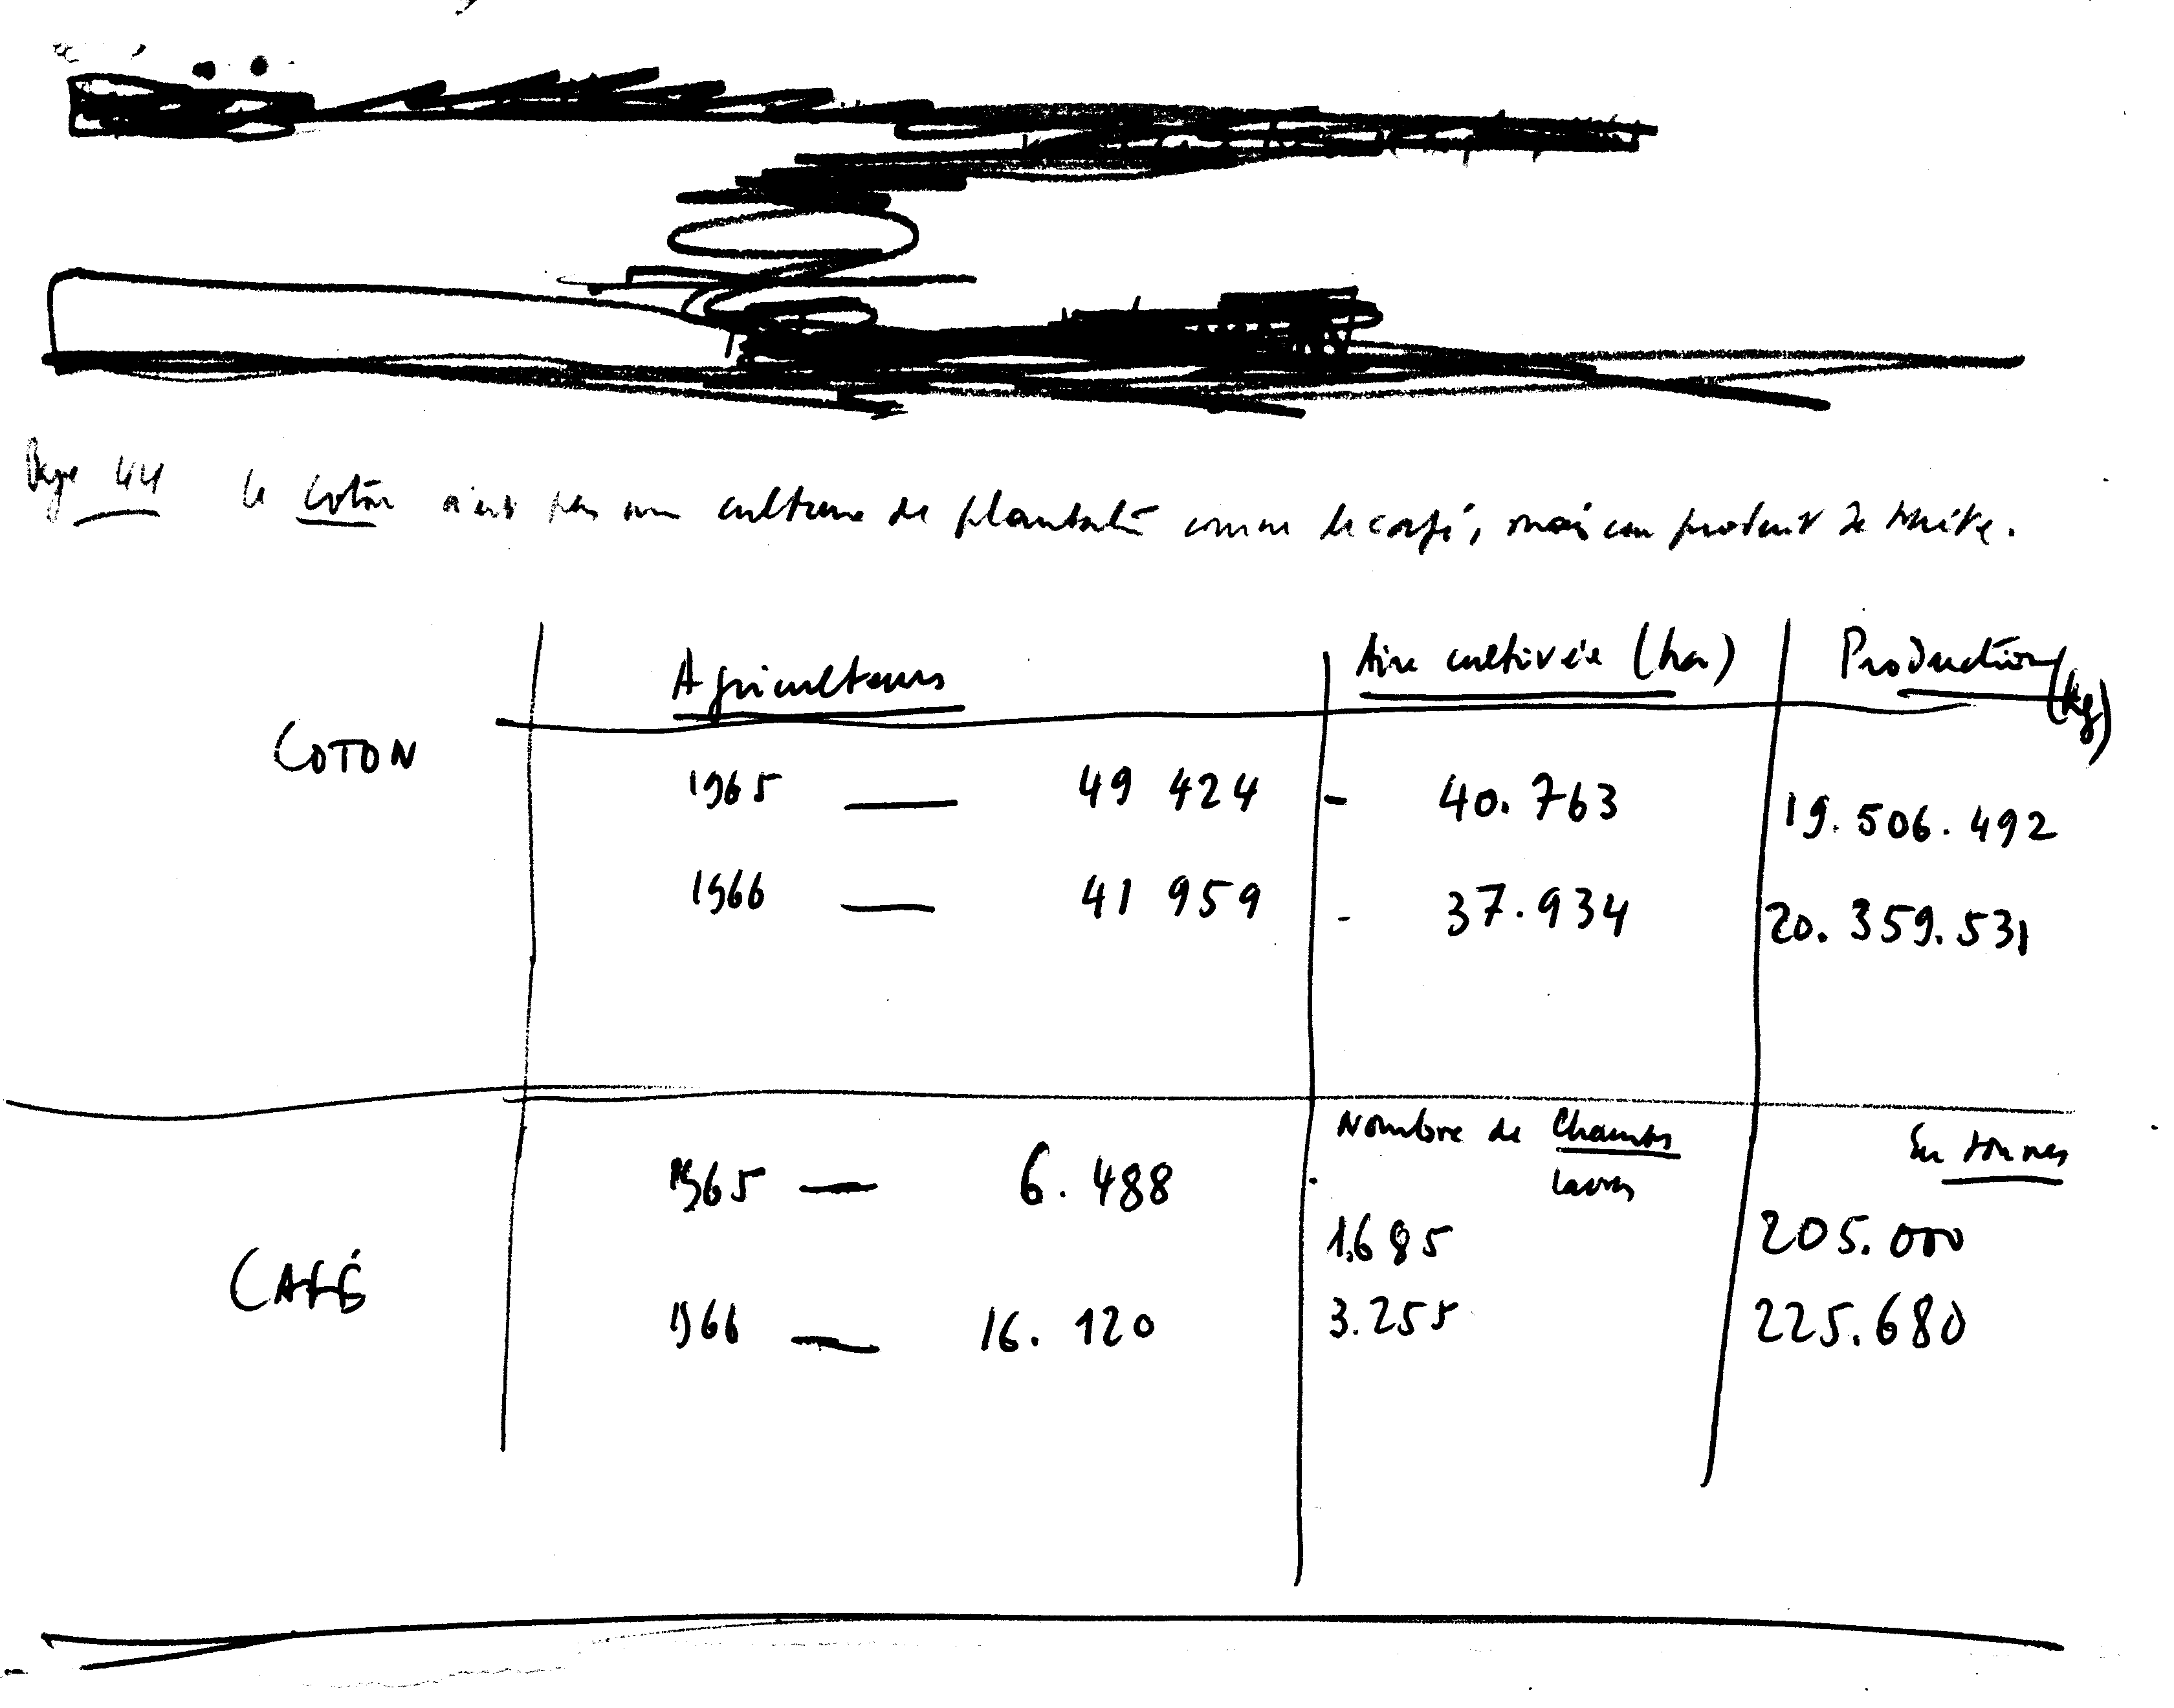 Page 44 Le Coton n'est pas une culture de plantation comme le café, mais un produit de traite.
Agriculteurs Aire cultivée (ha) Production (kg)
COTON
1965 — 49 424 - 40.763 19.506.492
1966 — 41 959 - 37.934 20.359.531
Nombre de Champs En tonnes
lavras
1965 — 6.488
1.685 205.000
CAFÉ
1966 — 16.120 3.255 225.680